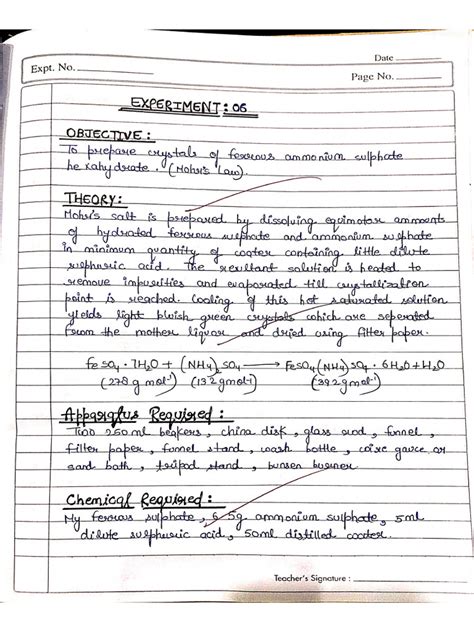 Date
Expt. No.
Page No.
EXPERIMENT: 06
OBJECTIVE:
To prepare crystals of ferrous ammonium sulphate
hexahydrate. (Mohr's Law).
THEORY:
Mohr's salt is prepared by dissolving equimolar ammounts
of hydrated ferrous sulphate and ammonium sulphate
in minimum quantity of water containing little dilute
sulphuric acid. The resultant solution is heated to
remove impurities and evaporated till crystallization
point is reached. Cooling of this hot saturated solution
yields light bluish green crystals which are seperated
from the mother liquor and dried using filter paper.
FeSO4 · 7H2O + (NH4)2SO4 → FeSO4(NH4)SO4 · 6H2O + H2O
(278 g mol⁻¹) (132 g mol⁻¹) (392 g mol⁻¹)
Apparatus Required:
Two 250ml beakers, china dish, glass rod, funnel,
filter paper, funnel stand, wash bottle, wire gauze or
sand bath, tripod stand, bunsen burner
Chemical Required:
ferrous sulphate, 6.5g ammonium sulphate, 5ml
dilute sulphuric acid, 50ml distilled water.
Teacher's Signature: